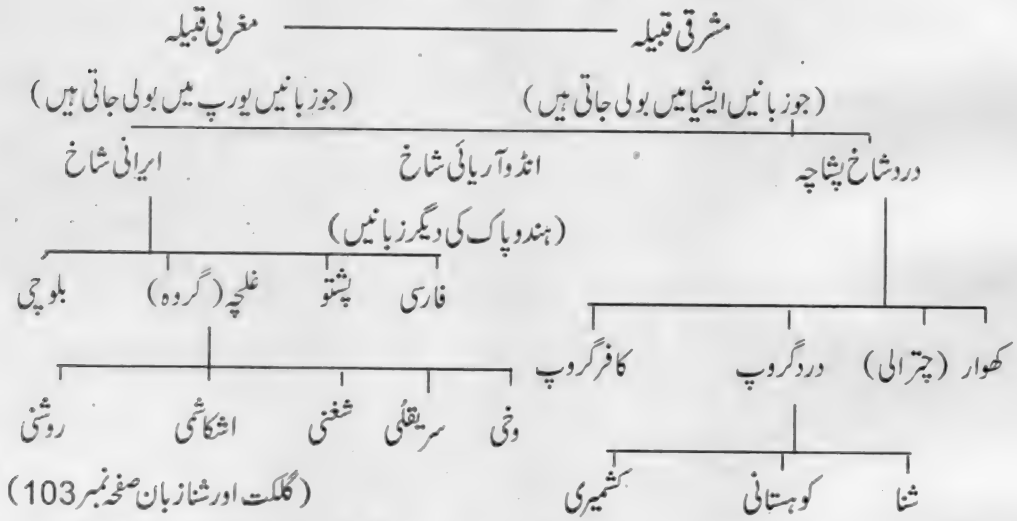 مشرقی قبیلہ مغربی قبیلہ
(جو زبانیں ایشیا میں بولی جاتی ہیں) (جو زبانیں یورپ میں بولی جاتی ہیں)
درد شاخ پشاچہ انڈو آریائی شاخ ایرانی شاخ
(ہندو پاک کی دیگر زبانیں)
فارسی پشتو غلچہ (گروہ) بلوچی
کھوار (چترالی) درد گروپ کافر گروپ
وخی سریقلُی شغنی اشکاشمی روشنی
شنا کوہستانی کشمیری
(گلگت اور شنا زبان صفحہ نمبر 103)